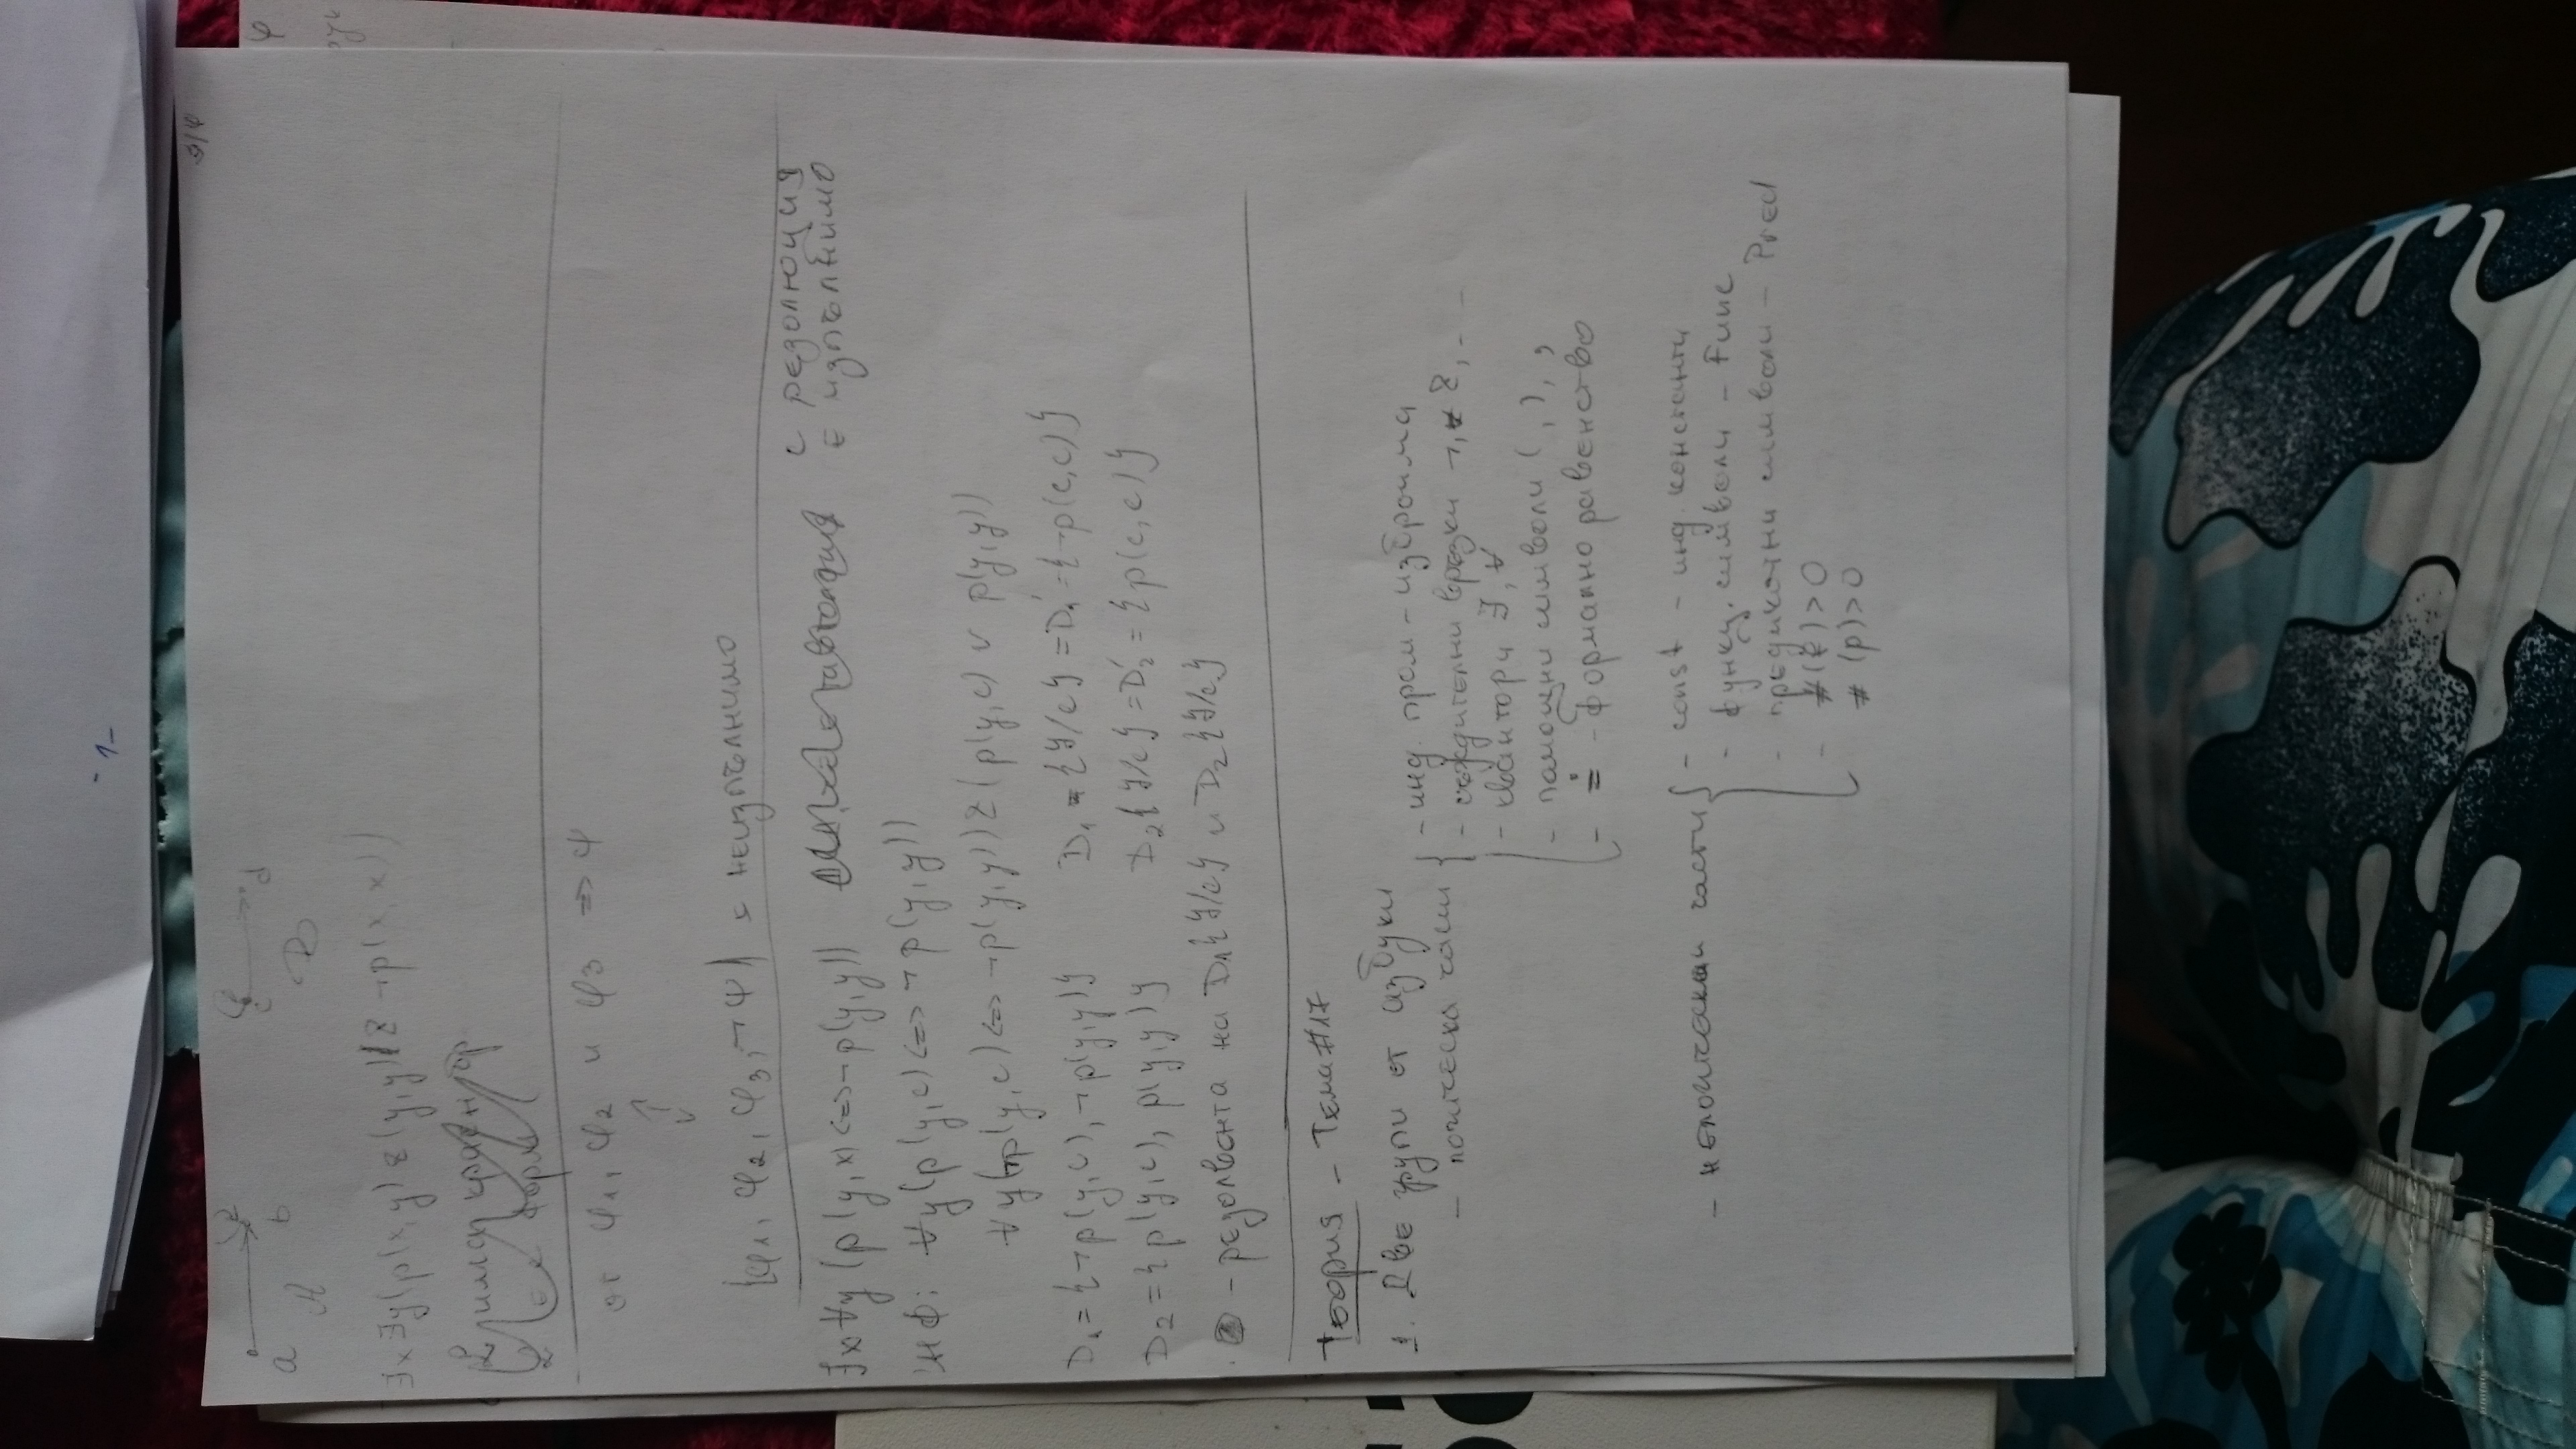 9/4
a A b B
∃x∃y(p(x,y) & (y,y) & ¬p(x,x))
форма
от φ₁, φ₂ и φ₃ => ψ
{φ₁, φ₂, φ₃, ¬ψ} е неизпълнимо
∃x∀y(p(y,x)<=>¬p(y,y)) с резолюция е изпълнимо
∀y(p(y,c)<=>¬p(y,y))
∀y(¬p(y,c)<=>¬p(y,y)) & (p(y,c) ∨ p(y,y))
D₁={¬p(y,c), ¬p(y,y)} D₁={y/c}=D₁'={¬p(c,c)}
D₂={p(y,c), p(y,y)} D₂{y/c}=D₂'={p(c,c)}
- резолвента на D₁{y/c} и D₂{y/c}
Теория - Тема #17
1. Две групи от азбуки
- логическа части { - инд. пром - изброима
- съждителни връзки ¬, &, - -
- квантори ∃, ∀
- помощни символи ( , ) , ,
- ≐ - формално равенство
- нелогически части { - const - инд. константи
- функц. символи - Func
- предикатни символи - Pred
- #(f)>0
#(p)>0
-1-